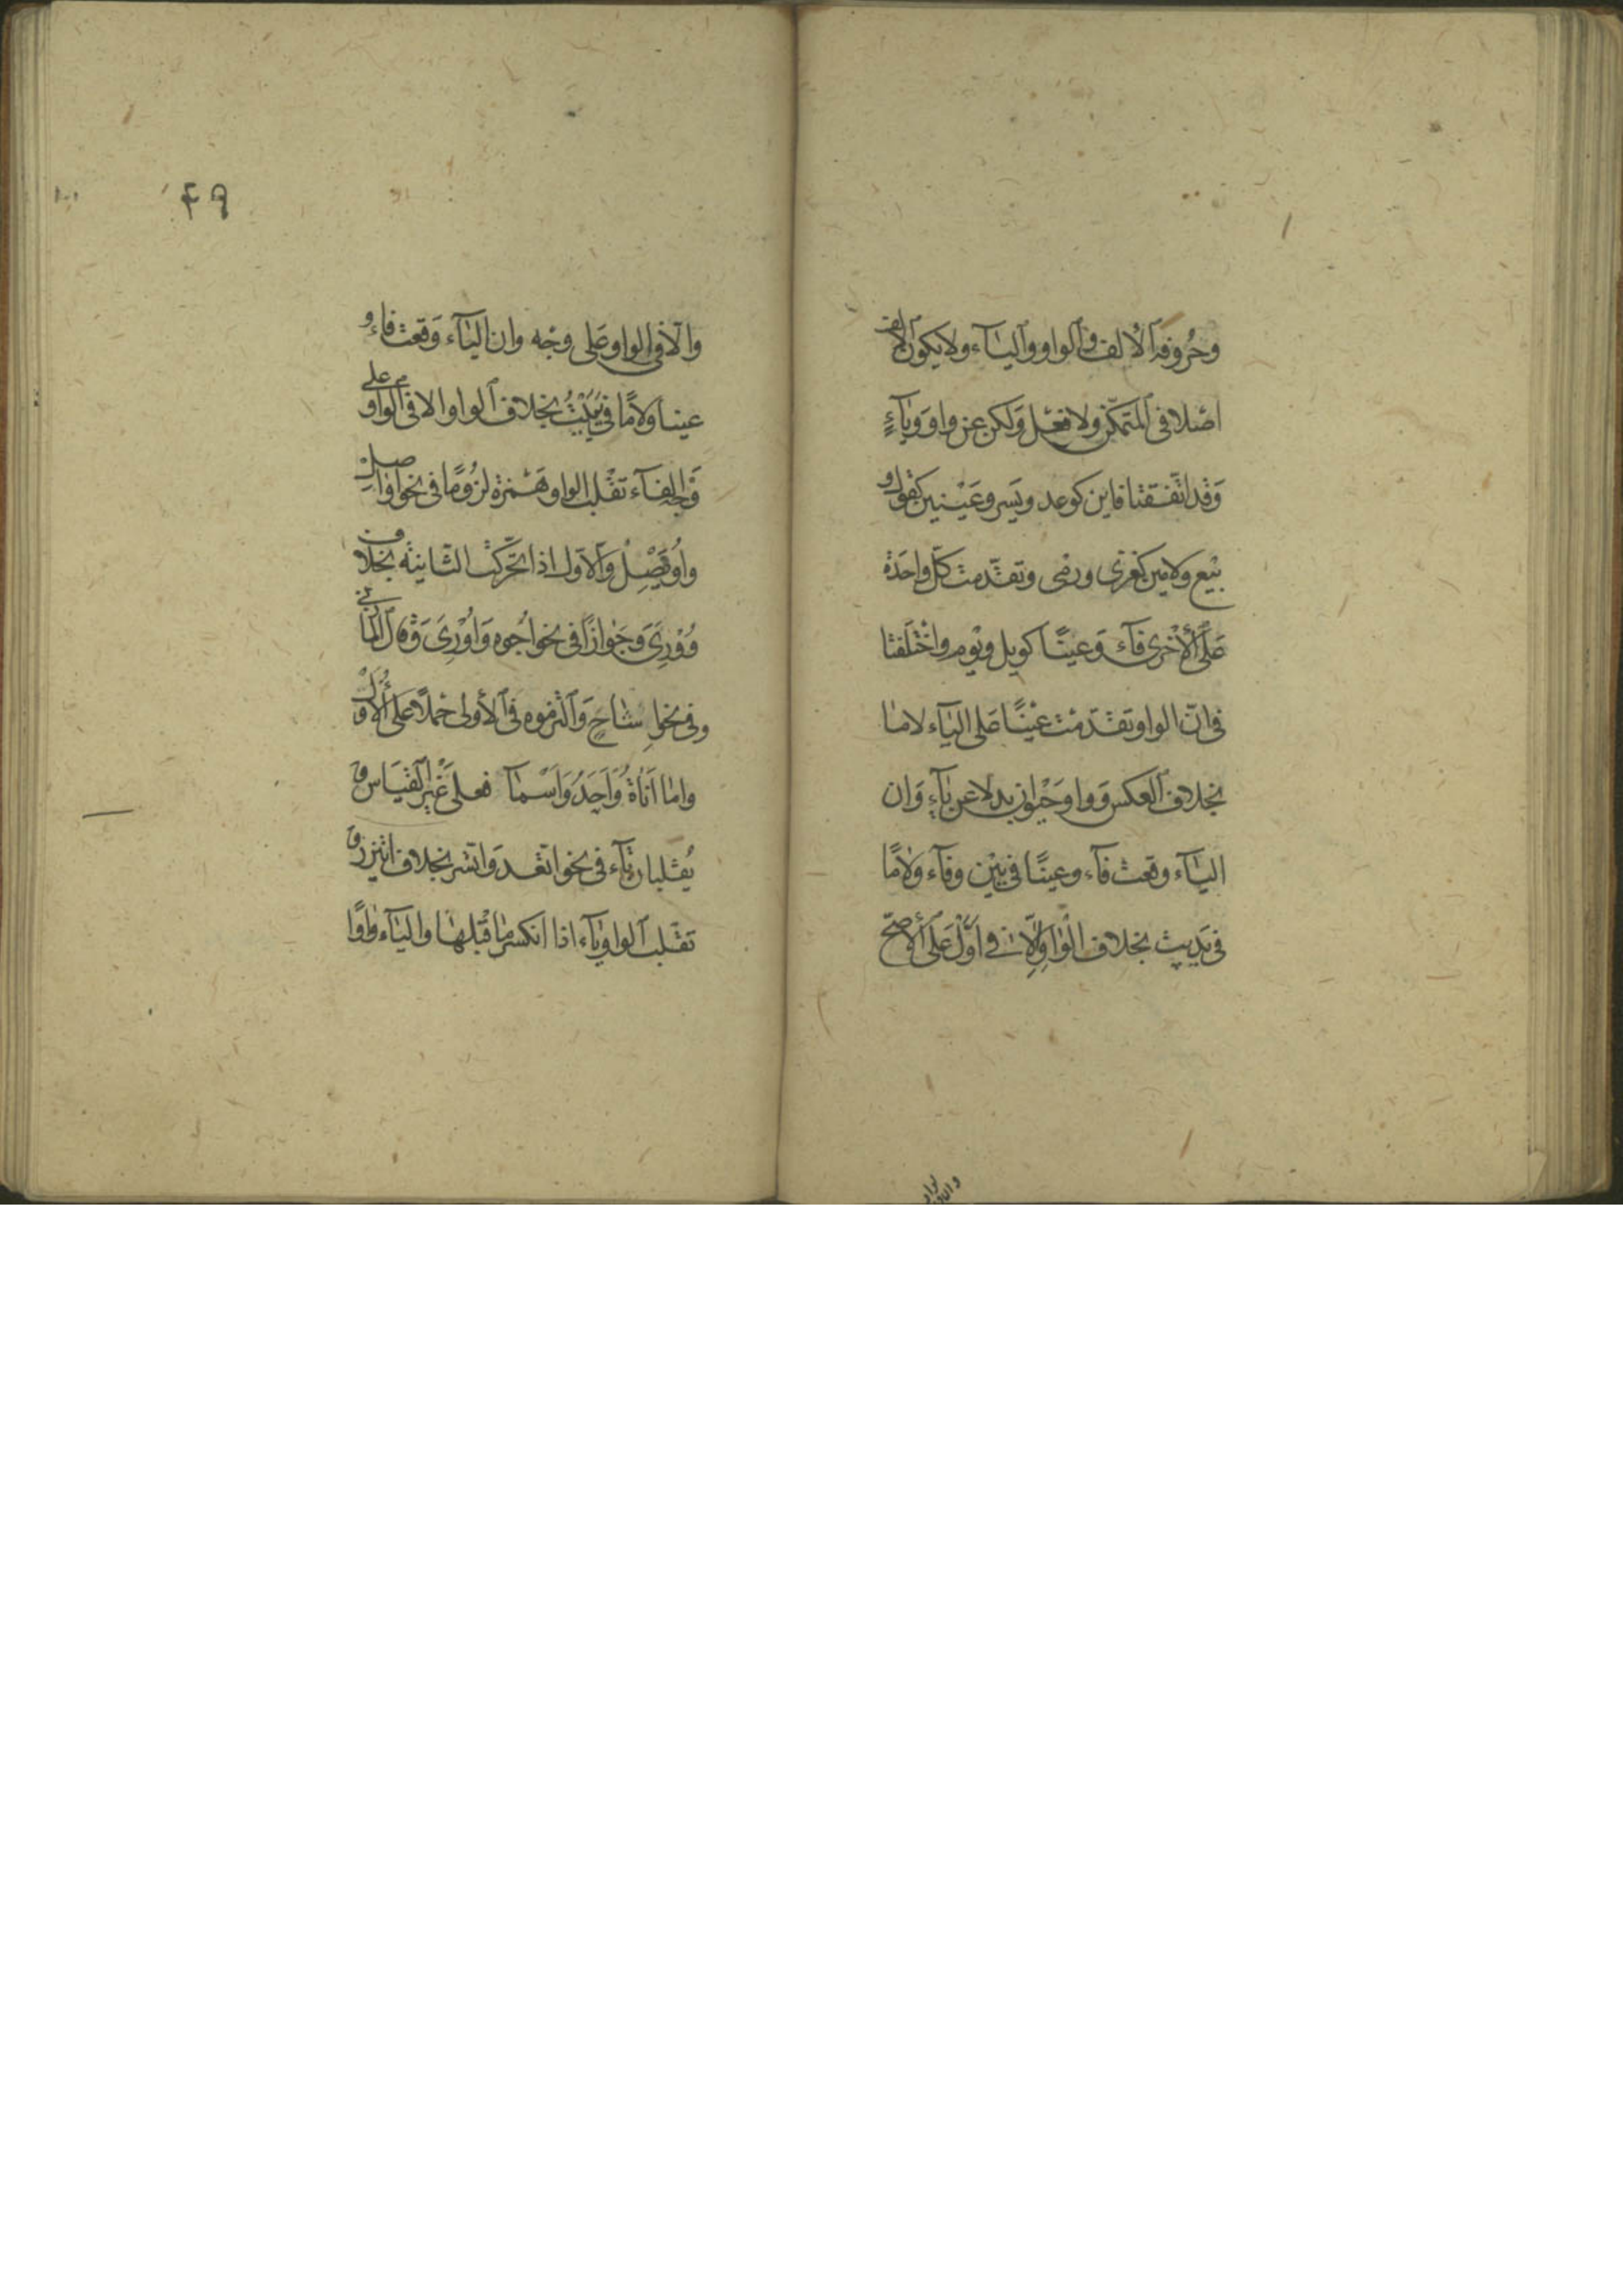 وحروفه الالف والواو والياء ولا يكون الالف
اصلا في المتمكن ولا فعل ولكن عن واو وياء
وقد اتفقتا فاين كوعد ويسر وعينين كقول و
بيع ولامين كغزى ورمى وتقدمت كل واحدة
على الأخرى فاء وعينا كويل ويوم واختلفتا
في ان الواو تقدمت عينا على الياء لاما
بخلاف العكس وواو حيوان بدلا عن ياء وان
الياء وقعت فاء وعينا في يين وفاء ولاما
في يديت بخلاف الواو الا في اول على الأصح
والا في الواو على وجه وان الياء وقعت فاء و
عينا ولاما في يييت بخلاف الواو الا في الواو على
وجه الفاء تقلب الواو همزة لزوما في نحو اواصل
واويصل والاول اذا تحركت الثانية بخلاف
ووري وجوازا في نحو اجوه واوري وقال المازني
وفي نحو اشاح والتزموه في الأولى حملا على الأول
واما اناة واحد واسماء فعلى غير القياس و
يقلبان تاء في نحو اتعد واتسر بخلاف ايتزر و
تقلب الواو ياء اذا انكسر ما قبلها والياء واوا